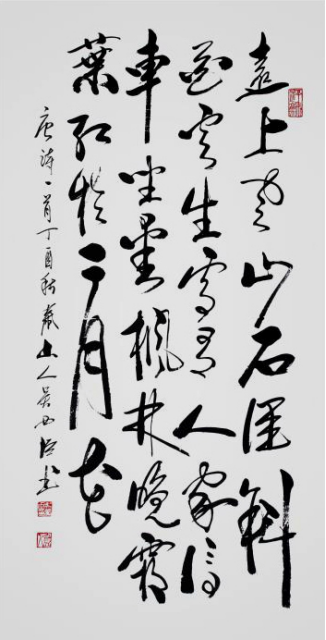 遠上寒山石徑斜
白云生處有人家停
車坐愛楓林晚霜
葉紅於二月花
唐詩一首丁酉秋山人吳書